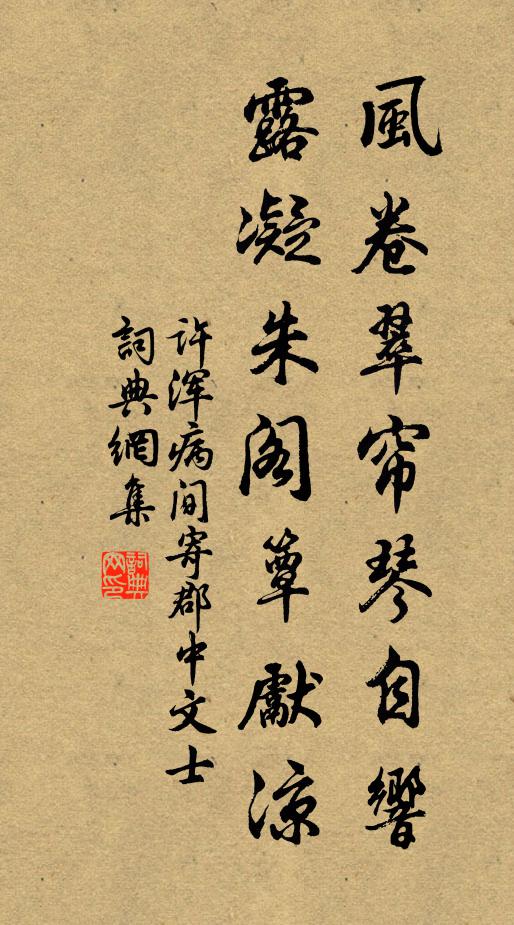 風卷翠帘琴自響
露凝朱阁簟獻涼
许浑病间寄郡中文士
詞典網集
詞典網印